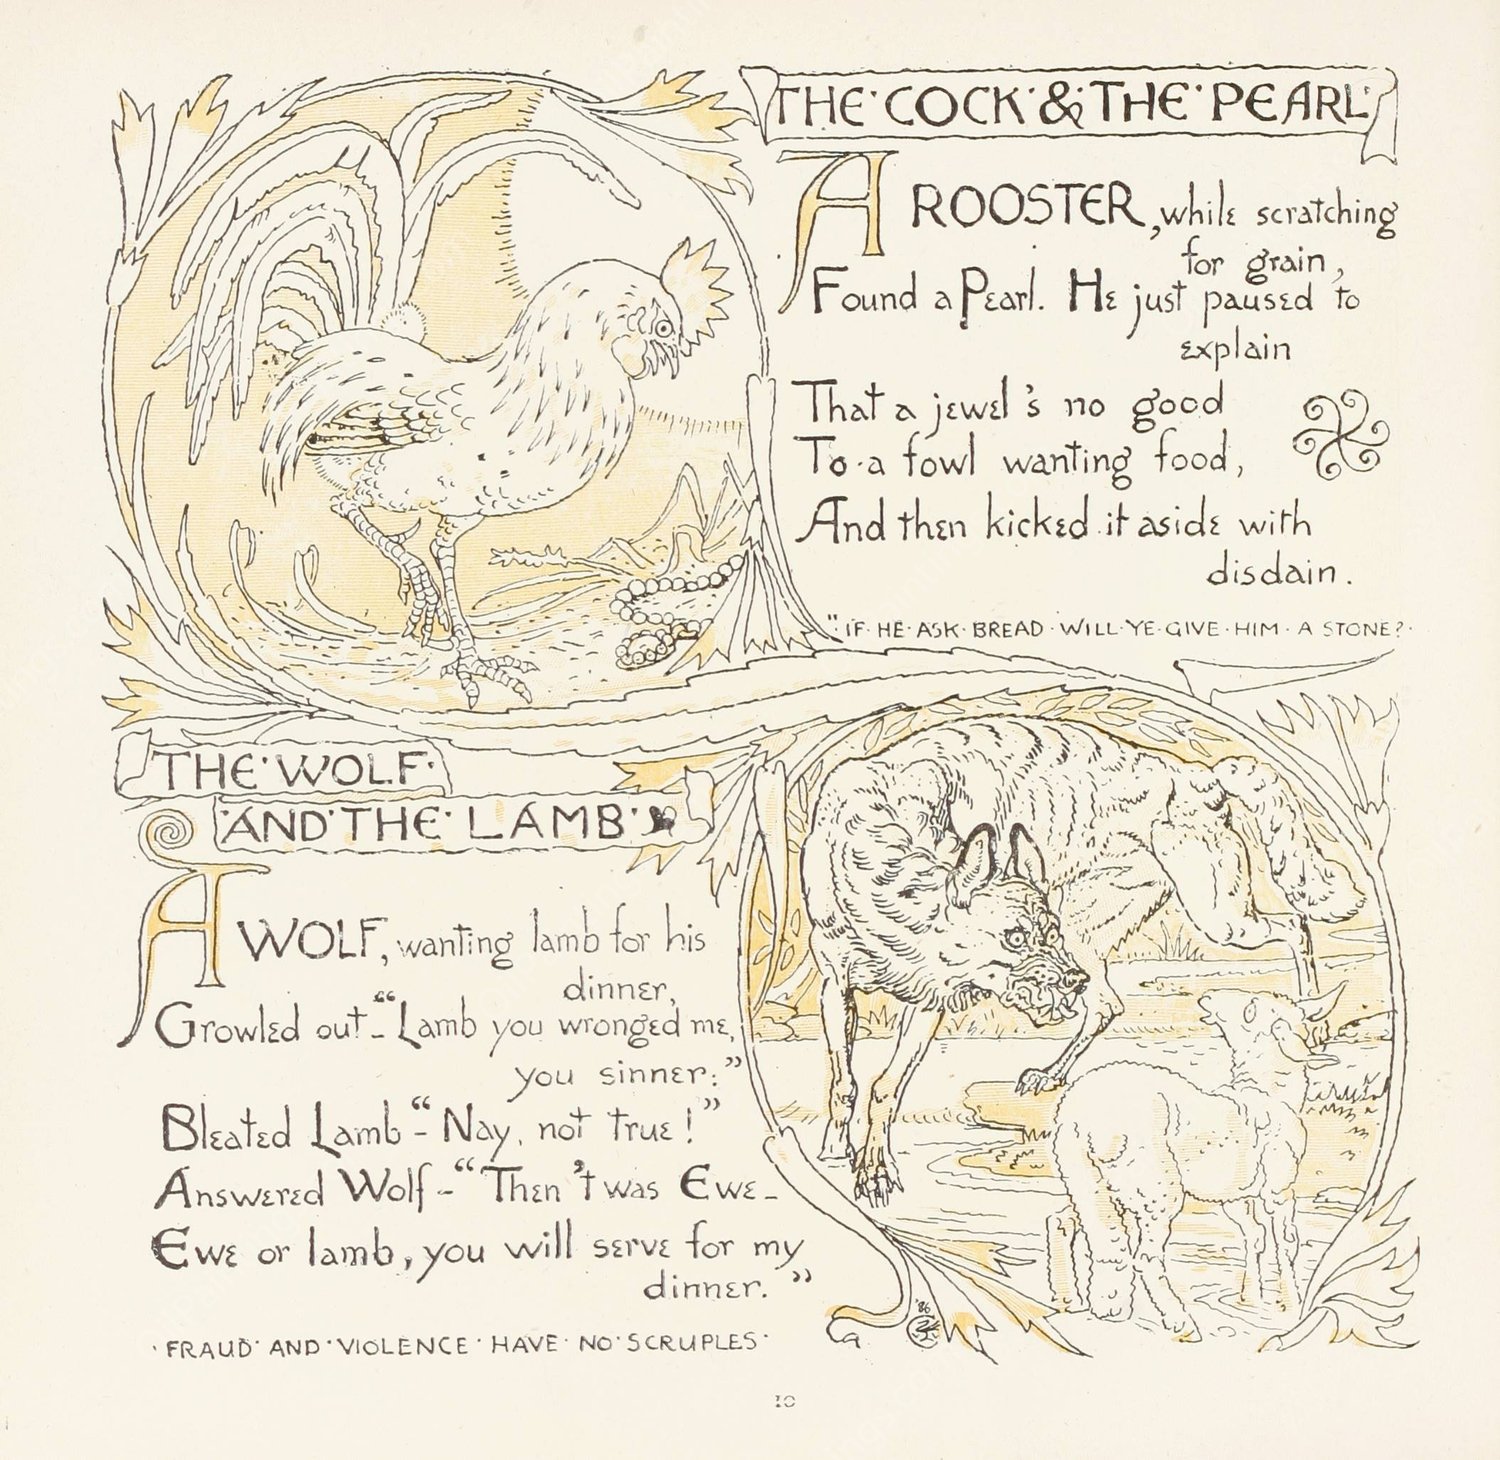 THE·COCK·&·THE·PEARL·
A ROOSTER, while scratching
for grain,
Found a Pearl. He just paused to
explain
That a jewel's no good
To a fowl wanting food,
And then kicked it aside with
disdain.
"IF·HE·ASK·BREAD·WILL·YE·GIVE·HIM·A STONE?·
THE·WOLF·
·AND·THE·LAMB·
A WOLF, wanting lamb for his
dinner,
Growled out–"Lamb you wronged me,
you sinner:"
Bleated Lamb–"Nay, not true!"
Answered Wolf–"Then 't was Ewe–
Ewe or lamb, you will serve for my
dinner."
·FRAUD·AND·VIOLENCE·HAVE·NO·SCRUPLES·
'86
10